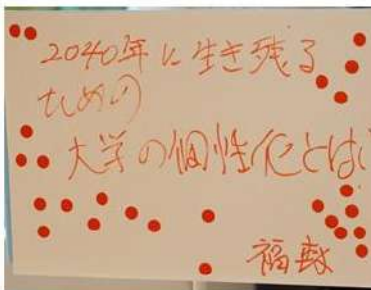 2040年に生き残る
ための
大学の個性化とは
福